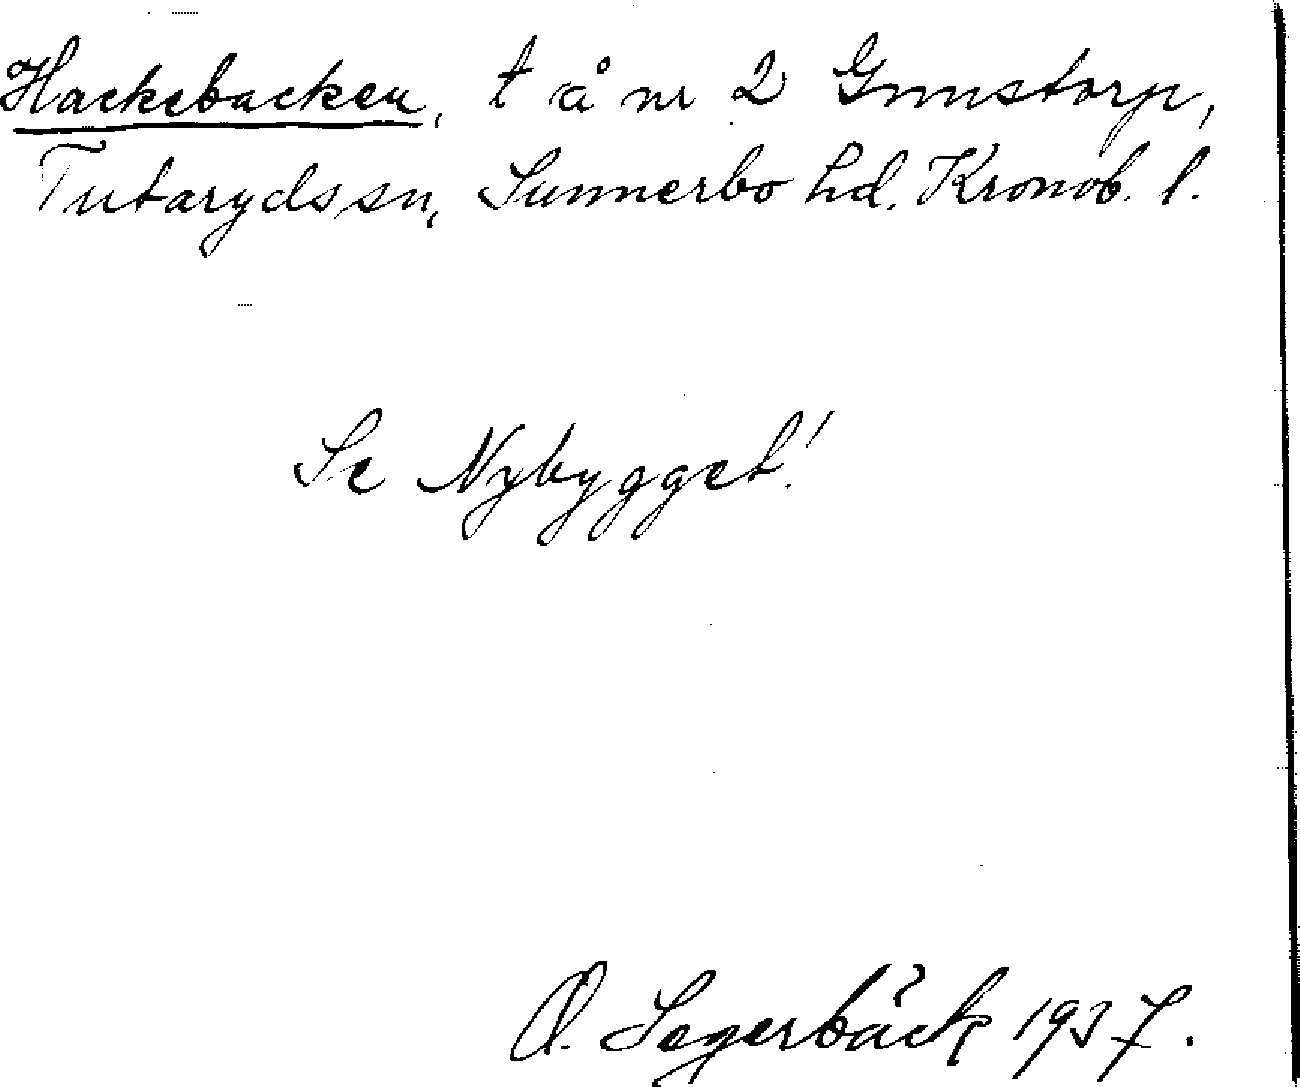 Hackebacken, t å nr 2 Gunstorp,
Tutaryds sn, Sunnerbo hd. Kronob. l.
Se Nybygget!
O. Segerbäck 1937.